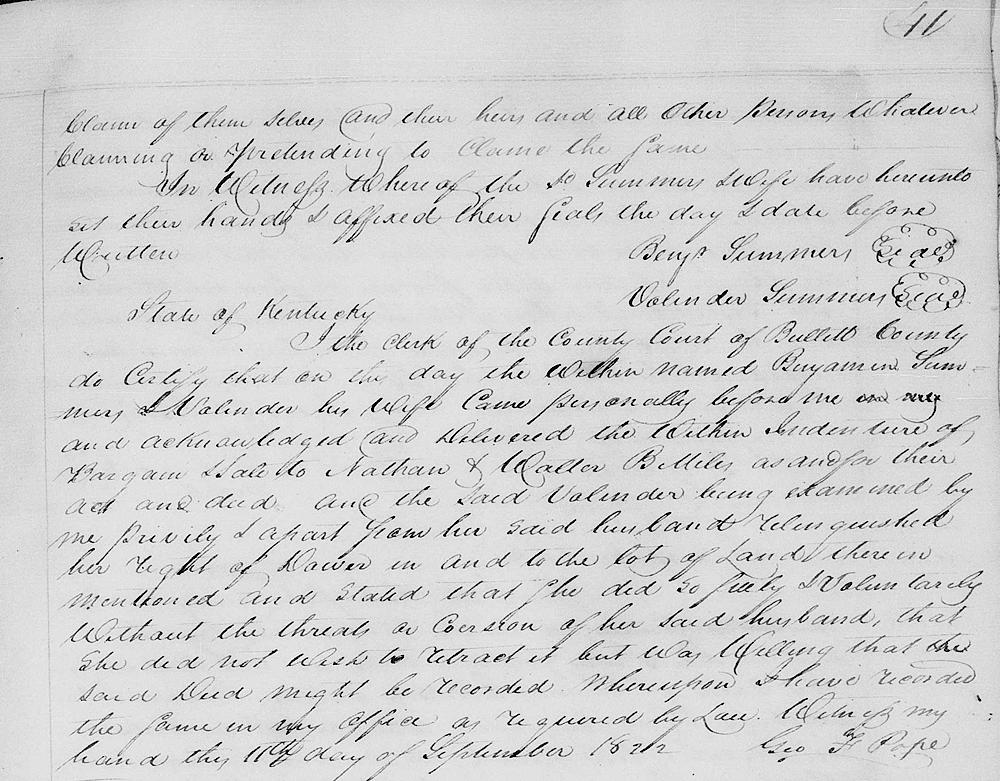 411
Claim of them selves and their heirs and all other Persons Whatever
Claiming or Pretending to Claime the Same
In Witness Whereof the sd Summers & Wife have hereunto
set their hands & affixed their Seals the day & date before
Written
Benjn Summers Seal
Valinder Summers Seal
State of Kentucky
I the Clerk of the County Court of Bullitt County
do Certify that on this day the Within named Benjamin Sum=
=mers & Valinder his Wife Came personally before me in my
and acknowledged and Delivered the Within Indenture of
Bargain & Sale to Nathan & Walter B Miles as and for their
act and deed and the said Valinder being examined by
me Privily & apart from her said husband relinquished
her right of Dower in and to the lot of Land therein
mentioned and Stated that She did so freely & Voluntarily
Without the threats or Coersion of her said husband, that
She did not Wish to retract it but Was Willing that the
said Deed might be recorded. Whereupon I have recorded
the Same in my office as required by Law. Witness my
hand this 11th day of September 1822 Geo F Pope